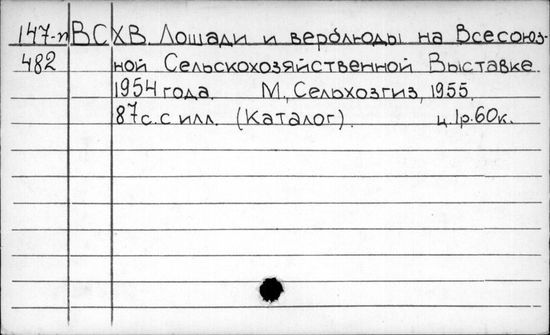 147-п ВСХВ. Лошади и верблюды на Всесоюз-
482 ной Сельскохозяйственной Выставке
1954 года. М., Сельхозгиз, 1955.
87 с. с илл. (Каталог). ц. 1р. 60к.